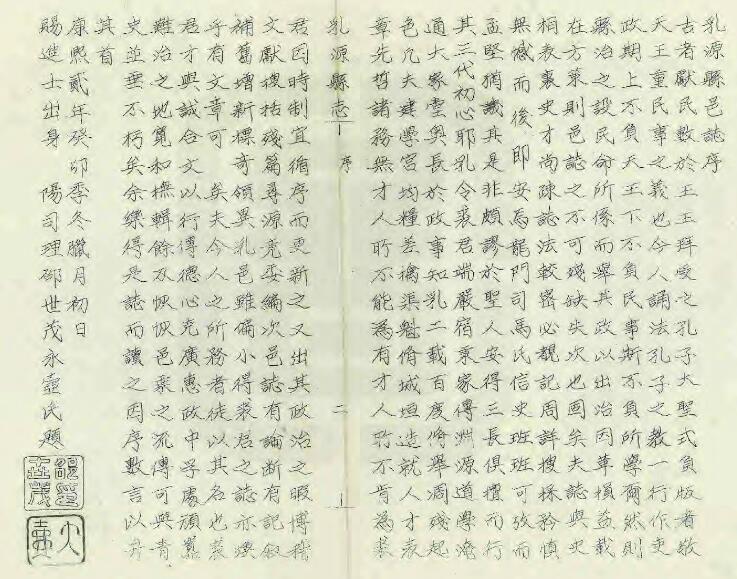 乳源縣邑誌序
古者獻民數於王王拜受之孔子大聖式負版者敬
天王重民事之義也今人誦法孔子之教一行作吏
政期上不負天王下不負民事斯不負所學爾然則
縣治之設民命所係而舉其政以出治因革損益載
在方策則邑誌之不可殘缺失次也固矣夫誌與史
相表裏史才尚踈誌法較密必覩記周詳搜採矜慎
無憾而後即安焉龍門司馬氏信史班班可攷而
孟堅猶譏其是非頗謬於聖人安得三長俱擅而行
其三代初心耶乳令裘君端嚴宿秉家傳淵源道學淹
通大家壼奧長於政事知乳二載百度脩舉凋殘起
色凡夫建學宮均糧差擒渠魁脩城垣造就人才表
章先哲諸務無才人所不能為有才人所不肯為裘
乳源縣志 序 二
君因時制宜循序而更新之又出其政治之暇博稽
文獻搜括殘篇尋源竟委編次邑誌有論斷有記叙
補舊增新標奇領異乳邑雖偏小得裘君之誌亦渙
乎有文章可 矣夫今人之所務者徒以其名也裘
君才與誠合文以行傳德心充廣惠政中孚處頑嚚
難治之地寬和撫輯餘及恢恢邑乘之流傳可與青
史並垂不朽矣余樂得是誌而讀之因序數言以弁
其首
康熙貳年癸卯季冬臘月初日
賜進士出身 陽司理邵世茂永壺氏題